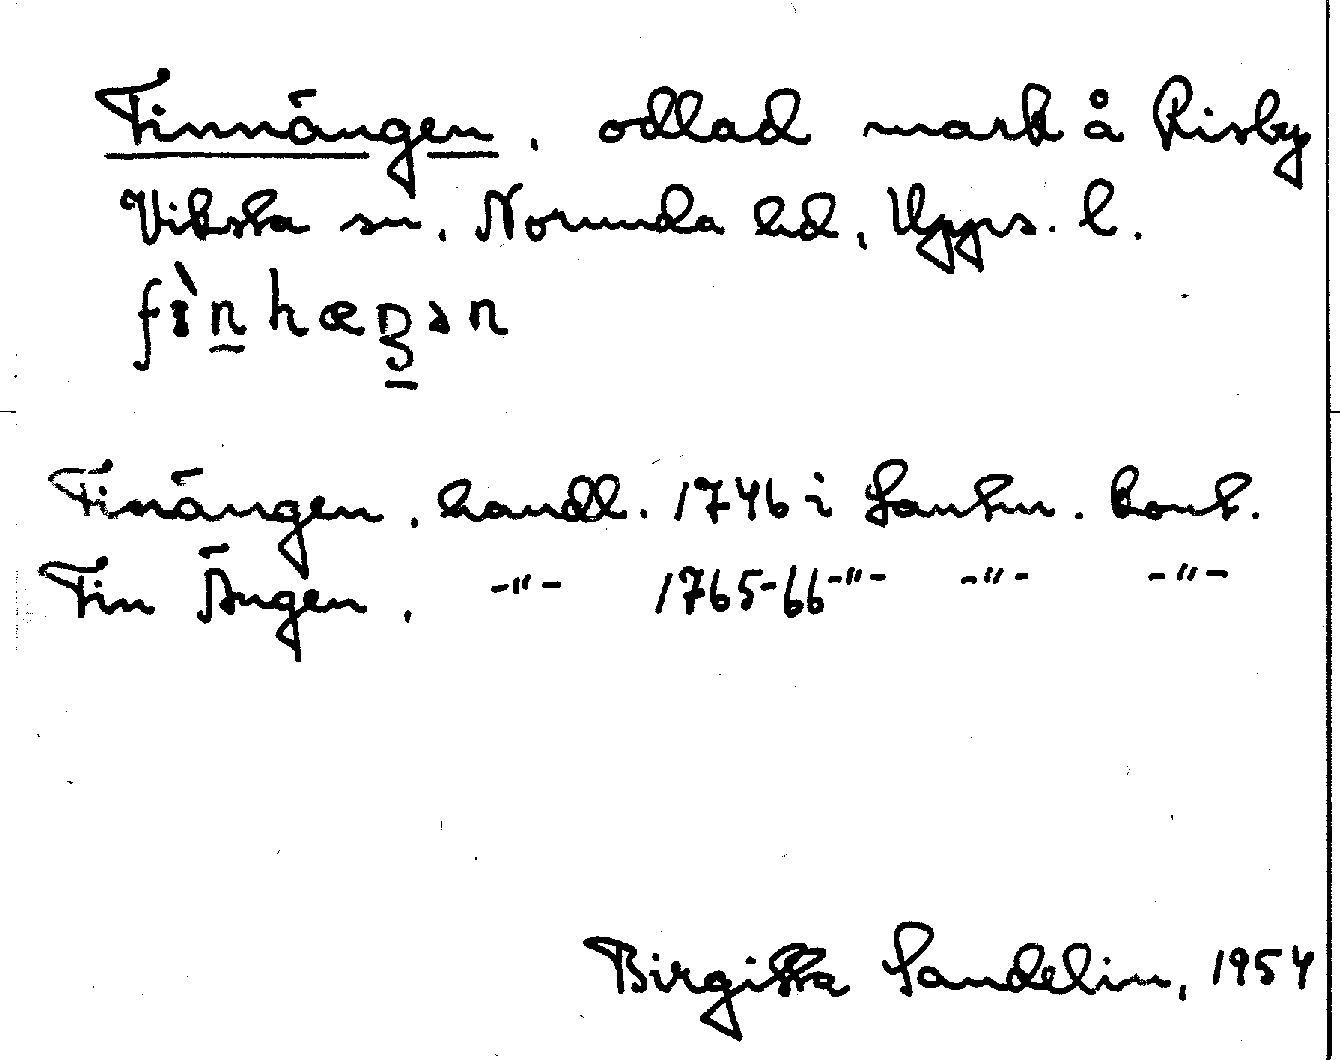 Finnängen, odlad mark å Risby
Viksta sn, Norunda hd, Upps. l.
fìnhæŋən
Finängen, handl. 1746 i Lantm. kont.
Fin Ängen, -"- 1765-66 -"- -"- -"-
Birgitta Sandelin, 1954